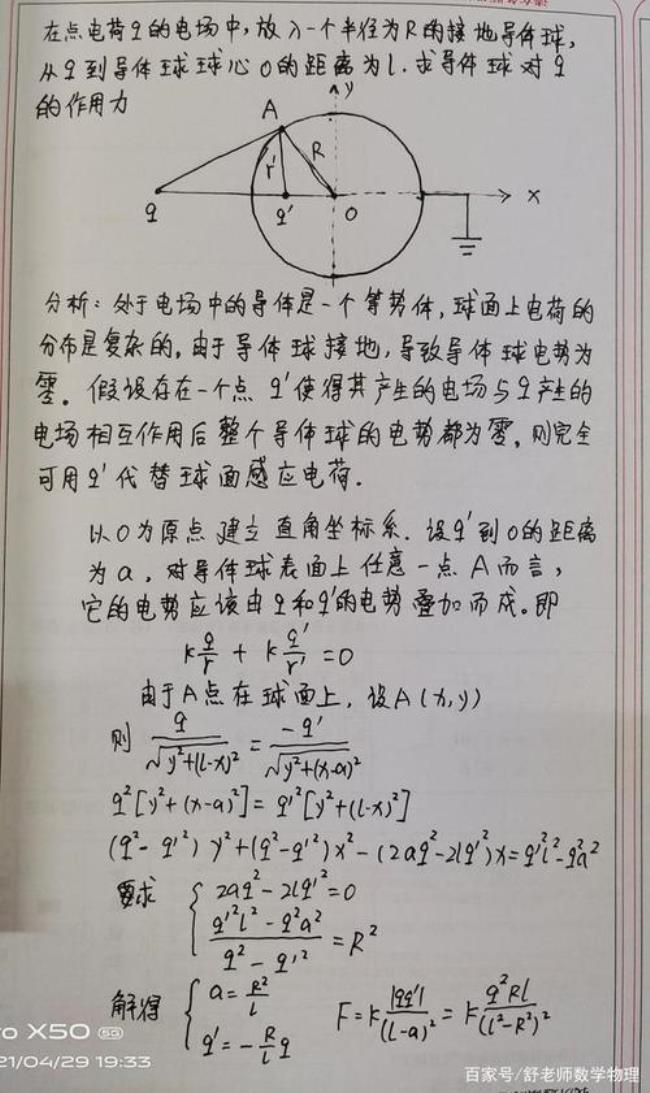 在点电荷q的电场中,放入一个半径为R的接地导体球,
从q到导体球球心O的距离为l.求导体球对q
的作用力
y
A
R
r'
q
q'
O
x
分析:处于电场中的导体是一个等势体,球面上电荷的
分布是复杂的,由于导体球接地,导致导体球电势为
零。假设存在一个点q'使得其产生的电场与q产生的
电场相互作用后整个导体球的电势都为零,则完全
可用q'代替球面感应电荷.
以O为原点建立直角坐标系.设q'到O的距离
为a,对导体球表面上任意一点A而言,
它的电势应该由q和q'的电势叠加而成。即
k q/r + k q'/r' = 0
由于A点在球面上,设A(x,y)
则 q/√(y²+(l-x)²) = -q'/√(y²+(x-a)²)
q²[y²+(x-a)²]=q'²[y²+(l-x)²]
(q²-q'²)y²+(q²-q'²)x²-(2aq²-2lq'²)x=q'²l²-q²a²
要求 { 2aq²-2lq'²=0
(q'²l²-q²a²)/(q²-q'²) = R²
解得 { a=R²/l F=k|qq'|/(l-a)²=k q²Rl/(l²-R²)²
q'=-R/l q
o X50 5G
21/04/29 19:33
百家号/舒老师数学物理